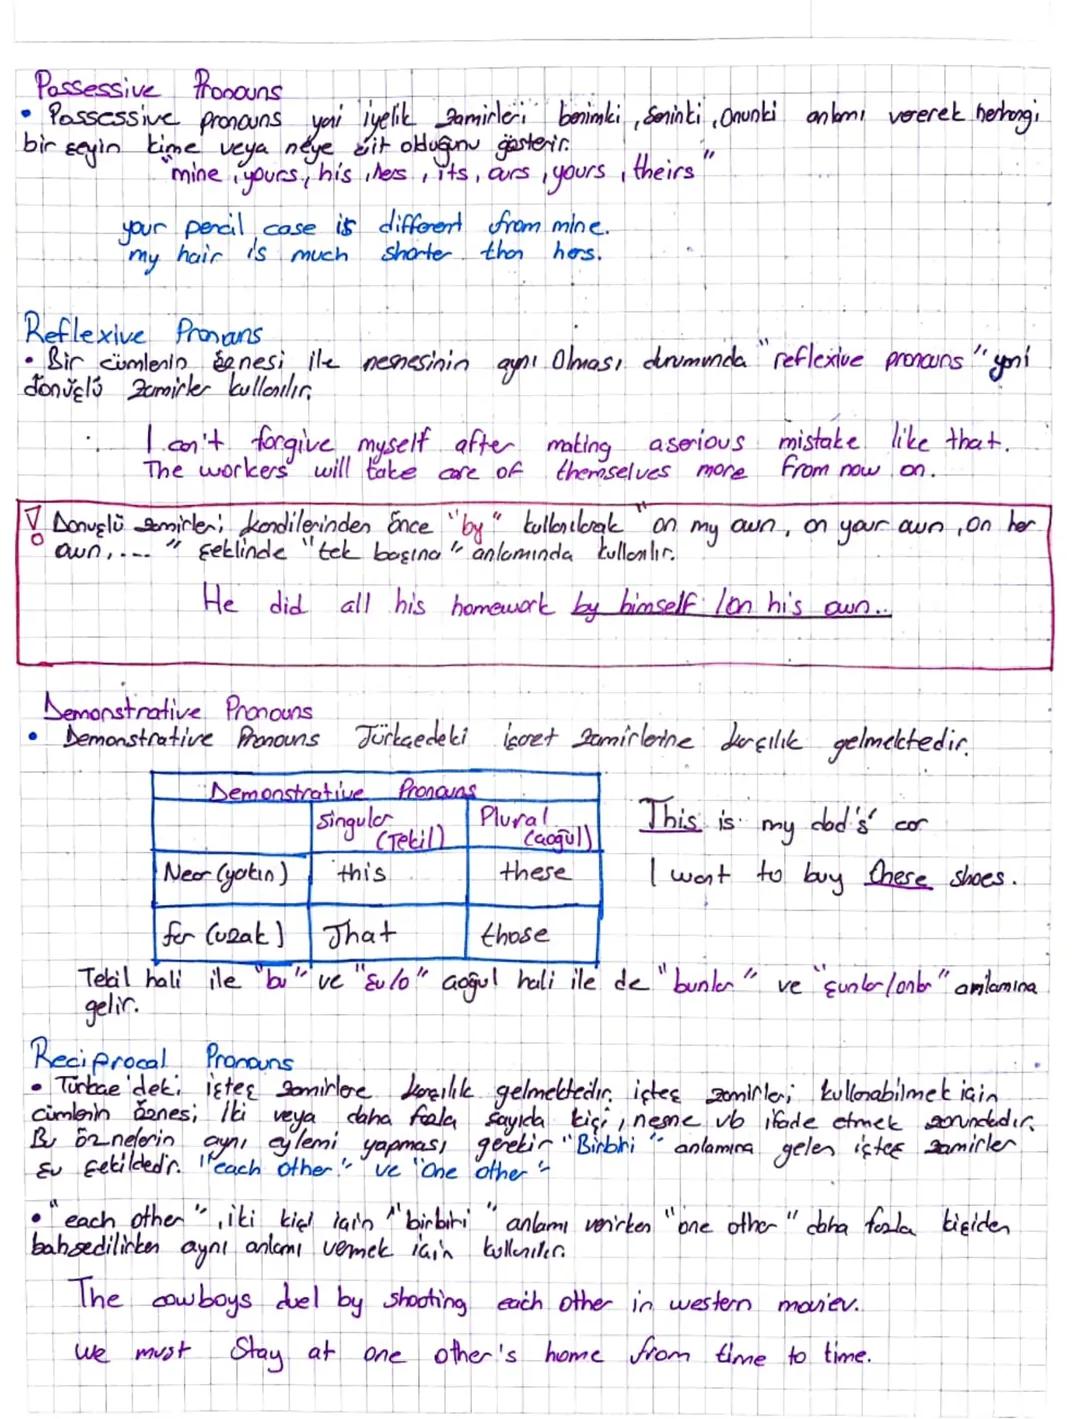 Possessive Pronouns
• Possessive pronouns yani iyelik zamirleri benimki, seninki, onunki anlamı vererek herhangi
bir şeyin kime veya neye ait olduğunu gösterir.
"mine, yours, his, hers, its, ours, yours, theirs"
your pencil case is different from mine.
my hair is much shorter than hers.
Reflexive Pronouns
• Bir cümlenin öznesi ile nesnesinin aynı olması durumunda "reflexive pronouns" yani
dönüşlü zamirler kullanılır.
I can't forgive myself after making a serious mistake like that.
The workers will take care of themselves more from now on.
! Dönüşlü zamirler; kendilerinden önce "by" kullanılarak "on my own, on your own, on her
own, .... " şeklinde "tek başına" anlamında kullanılır.
He did all his homework by himself / on his own..
Demonstrative Pronouns
• Demonstrative Pronouns Türkçedeki işaret zamirlerine karşılık gelmektedir.
Demonstrative Pronouns
Singular (Tekil) Plural (çoğul)
Near (yakın) this these
far (uzak) That those
This is my dad's' car
I want to buy these shoes.
Tekil hali ile "bu" ve "şu/o" çoğul hali ile de "bunlar" ve "şunlar/onlar" anlamına
gelir.
Reciprocal Pronouns
• Türkçe'deki işteş zamirlere karşılık gelmektedir. işteş zamirleri kullanabilmek için
cümlenin öznesi; iki veya daha fazla sayıda kişi, nesne vb ifade etmek zorundadır.
Bu öznelerin aynı eylemi yapması gerekir "Birbiri" anlamına gelen işteş zamirler
şu şekildedir. "each other" ve "One other"
• "each other", iki kişi için "birbiri" anlamı verirken "one other" daha fazla kişiden
bahsedilirken aynı anlamı vermek için kullanılır.
The cowboys duel by shooting each other in western moviev.
we must Stay at one other's home from time to time.